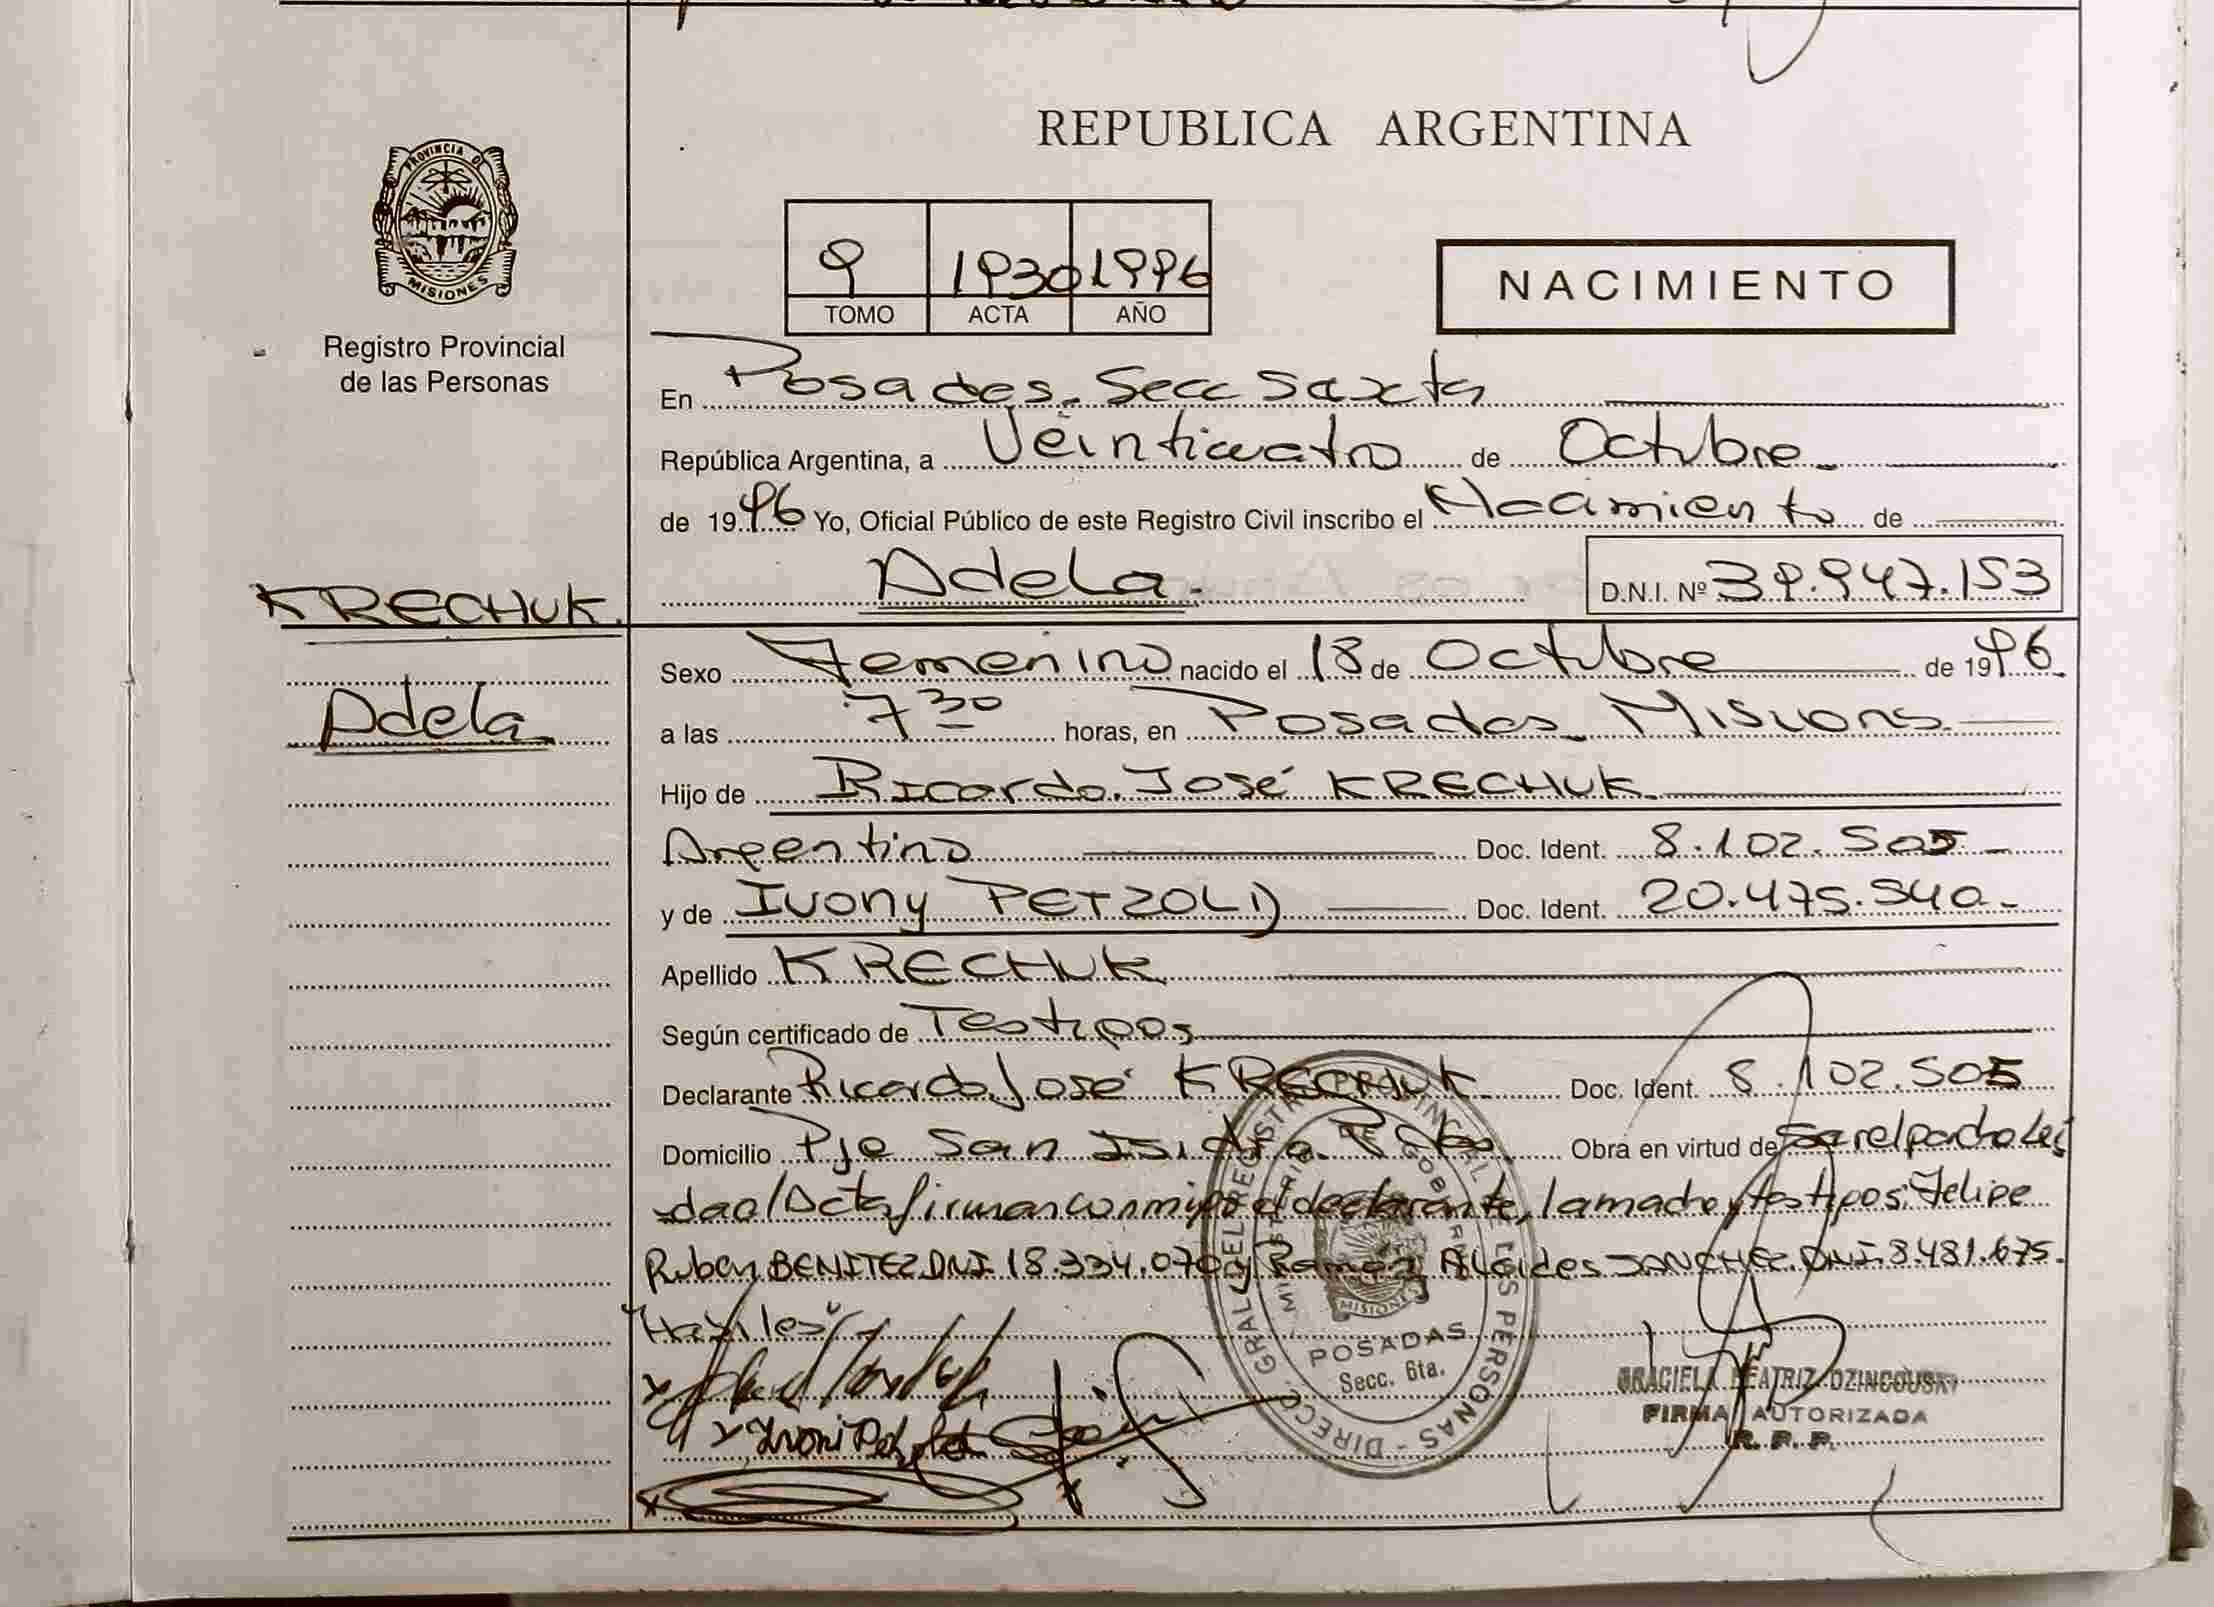 REPUBLICA ARGENTINA
PROVINCIA DE
MISIONES
Registro Provincial
de las Personas
9 1930 1996
TOMO ACTA AÑO
NACIMIENTO
En Posadas. Secc Sexta
República Argentina, a Veinticuatro de Octubre
de 1996 Yo, Oficial Público de este Registro Civil inscribo el Nacimiento de
Adela. D.N.I. Nº 39.947.153
KRECHUK.
Adela
Sexo Femenino nacido el 18 de Octubre de 1996
a las 7 30 horas, en Posadas Misiones
Hijo de Ricardo José KRECHUK
Argentino Doc. Ident. 8.102.505
y de Ivony PETZOLD Doc. Ident. 20.475.540
Apellido KRECHUK
Según certificado de Testigos
Declarante Ricardo José KRECHUK Doc. Ident. 8.102.505
Domicilio Pje San Isidro Pdas. Obra en virtud de ser el padre Leí
da el Acta firman conmigo el declarante, la madre y testigos: Felipe
Ruben BENITEZ DNI 18.334.070 y Ramón Alcides SANCHEZ. DNI. 8.481.675.
Habiles
DIREC. GRAL. DEL REGISTRO PROVINCIAL DE LAS PERSONAS
MINISTERIO DE GOBIERNO
MISIONES
POSADAS
Secc. 6ta.
GRACIELA BEATRIZ DZINCOUSKI
FIRMA AUTORIZADA
R. P. P.